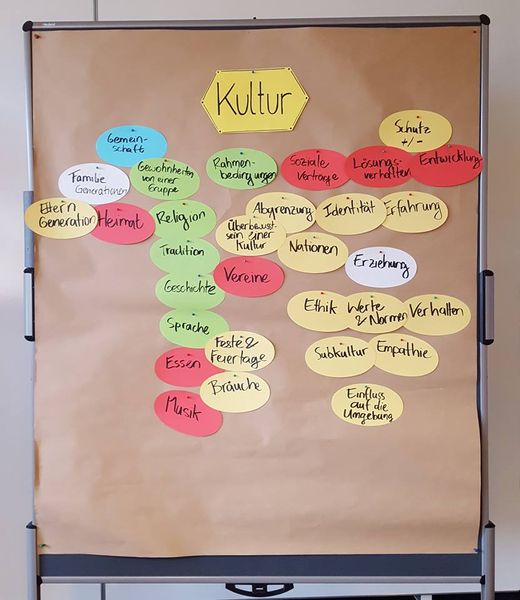 Kultur
Schutz
+/-
Gemein-
schaft
Gewohnheiten
von einer
Gruppe
Rahmen-
bedingungen
Soziale
Vorträge
Lösungs-
verhalten
Entwicklung
Familie
Generationen
Eltern
Generation
Heimat
Religion
Abgrenzung
Identität
Erfahrung
Überbewusst
sein einer
Kultur
Tradition
Nationen
Erziehung
Geschichte
Vereine
Ethik
Werte
& Normen
Verhalten
Sprache
Feste &
Feiertage
Subkultur
Empathie
Essen
Bräuche
Musik
Einfluss
auf die
Umgebung